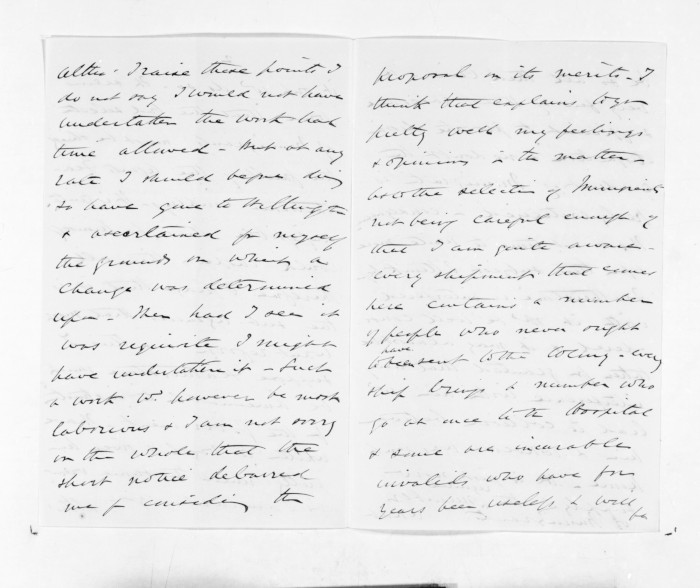 altho' I raise these points I
do not say I would not have
undertaken the work had
time allowed - But at any
rate I should before doing
so have gone to Wellington
& ascertained for myself
the grounds on which a
change was determined
upon - Then had I seen it
was requisite I might
have undertaken it - Such
a work wd. however be most
laborious & I am not sorry
on the whole that the
short notice debarred
me fm considering the
proposal on its merits - I
think that explains to you
pretty well my feelings
& opinions in the matter -
As to the selection of Immigrants
not being careful enough of
that I am quite aware -
every shipment that comes
here contains a number
of people who never ought
to have been sent to the Colony - every
ship brings a number who
go at once to the Hospital
& some are incurable
invalids who have for
years been useless & will
be